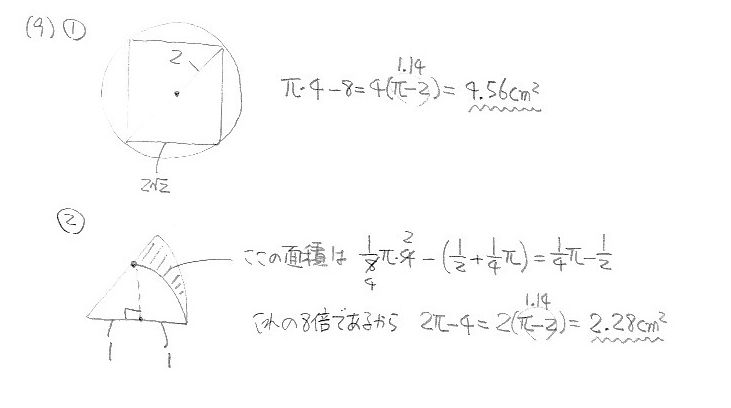 (4) ①
2
1.14
π・4-8=4(π-2)= 4.56cm²
2√2
②
ここの面積は 1/8π・4-(1/2+1/4π)=1/4π-1/2
2
4
1.14
これの8倍であるから 2π-4=2(π-2)= 2.28cm²
1 1